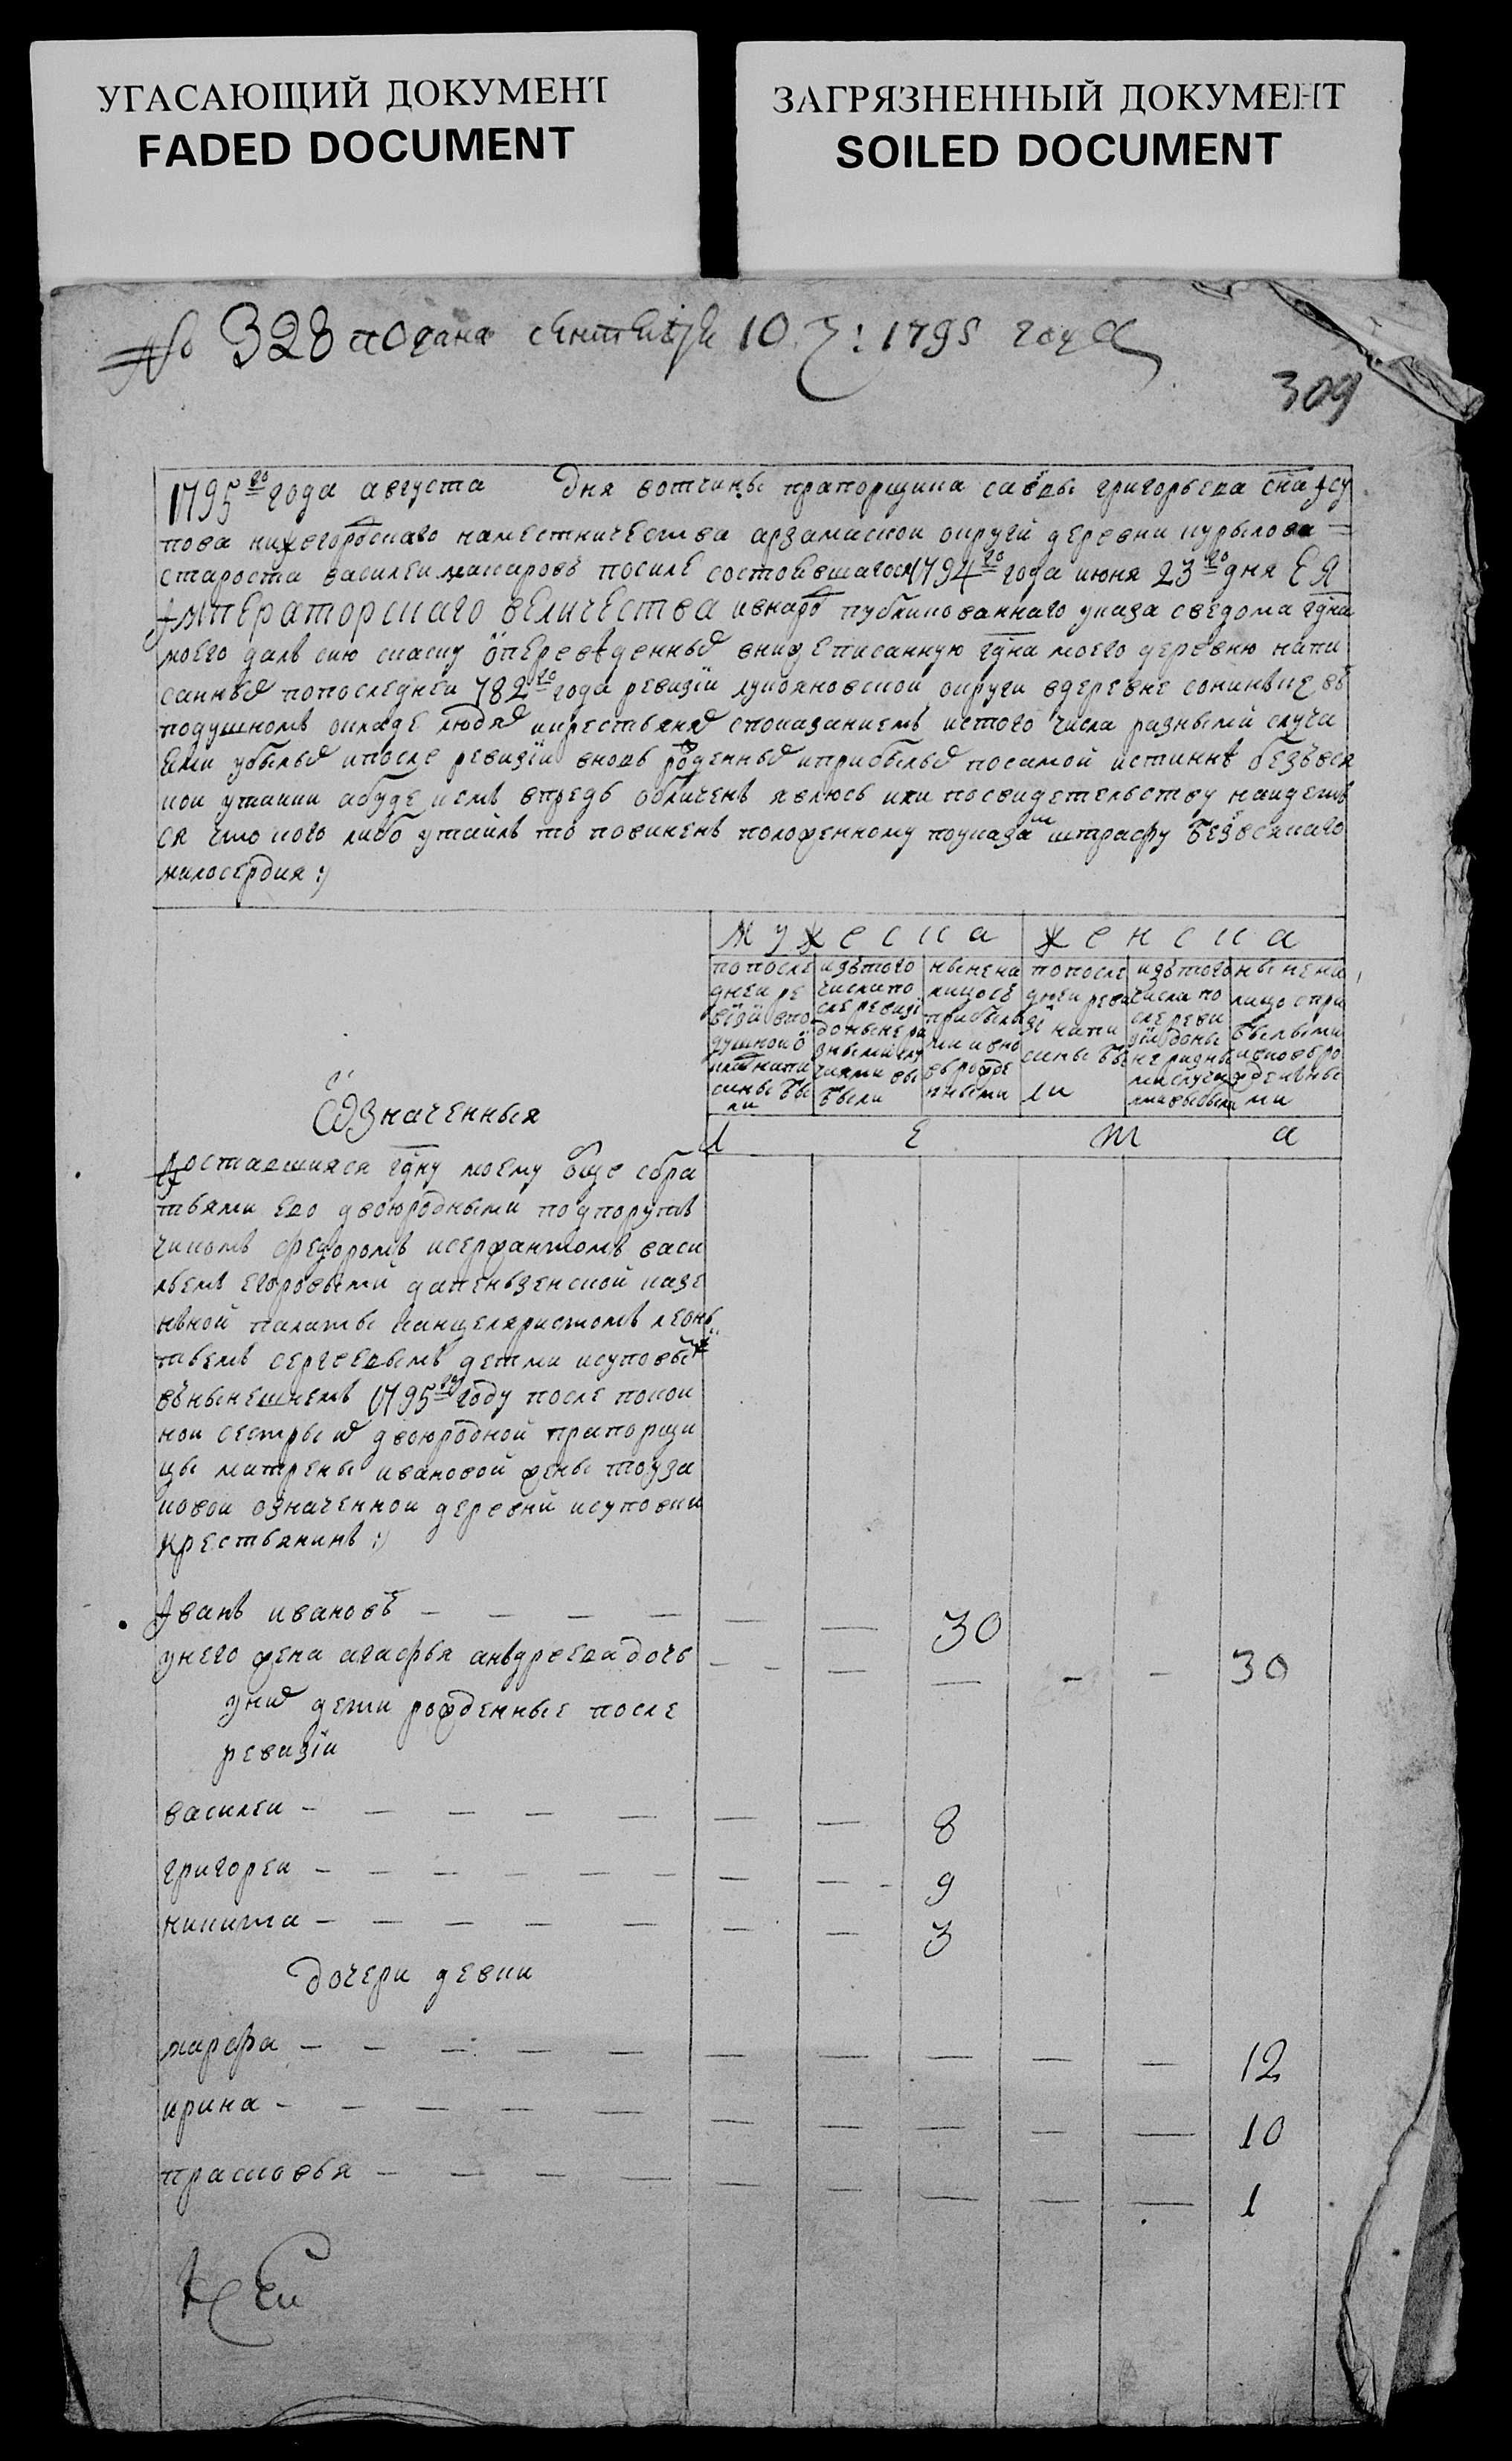 УГАСАЮЩИЙ ДОКУМЕНТ
FADED DOCUMENT
ЗАГРЯЗНЕННЫЙ ДОКУМЕНТ
SOILED DOCUMENT
№ 328 подана сентября 10 ч: 1795 года
309
1795го года августа дня вотчины прапорщика савы григорьева сна исупова
нижегородскаго наместничества арзамаской округи деревни курылова
староста василей макаровъ посиле состоявшагося 1794го года июня 23го дня ЕЯ
Императорскаго величества ивнародъ публикованнаго указа сведома гдна
моего далъ сию скаску опереведенныхъ внижеписанную гдна моего деревню напи
санныхъ попоследней 782го года ревизїи лукояновской округи вдеревне
подушномъ окладе людяхъ икрестьяняхъ спаказаниемъ истого числа разными случа
ями убылыхъ ипосле ревизїи вновь рожденныхъ иприбылыхъ посамой истинне безъвся
кой утайки абуде кемъ впредь обличенъ явлюсь или посвидетельству найдет
ся что кого либо утаилъ то повиненъ положенному поуказамъ штрафу безъвсякаго
милосердия :)
мужеска
женска
попосле
дней ре
визїи впо
душной о
кладъ напи
саны бы
ли
изътого
числа по
сле ревизї
доныне ра
зными слу
чаями вы
были
ныне на
лицо съ
прибылы
ми ивно
вьрожде
нными
попосле
дней реви
зї напи
саны бы
ли
изътого
числа по
сле реви
зїи доны
не разны
ми случа
ями выбыли
ныне на
лицо спри
былыми
ивновьро
жденны
ми
лета
Означенныя
Доставшияся гдну моему обще збра
тьями ево двоюродными подпорут
чикомъ федоромъ исержантомъ васи
льемъ егоровыми дапеньзенской казе
нъной палаты канцеляристомъ леонь
тьемъ сергеевымъ детми исуповыми
вънынешнемъ 1795м году после покой
ной сестры ихъ двоюродной прапорщи
цы матрены ивановой жены
означенной деревни исуповки
крестьянинъ :)
Иванъ ивановъ — — — — — — 30
унего жена агафья анъдреева дочь — — — — — — 30
унихъ дети рожденные после
ревизїи
василей — — — — — — — 8
григорей — — — — — — — — 9
никита — — — — — — — 3
дочери девки
марфа — — — — — — — — — — 12
ирина — — — — — — — — — — 10
прасковья — — — — — — — — — 1
К Сей